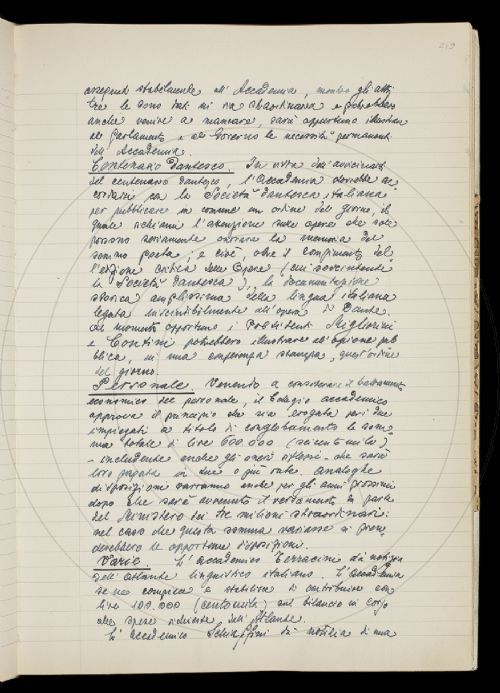 219
assegnati stabilmente all'Accademia, mentre gli altri
tre le sono dati in via straordinaria e potrebbero
anche venire a mancare, sarà opportuno illustrare
al Parlamento e al Governo le necessità permanenti
dell'Accademia.
Centenario dantesco. In vista dell'avvicinarsi
del centenario dantesco, l'Accademia dovrebbe ac-
cordarsi con la Società dantesca italiana
per pubblicare in comune un ordine del giorno, il
quale richiami l'attenzione sulle opere che sole
possono seriamente onorare la memoria del
sommo poeta; e cioè, oltre il compimento del-
l'edizione critica delle Opere (cui sovrintende
la Società dantesca), la documentazione
storica amplissima della lingua italiana
legata inscindibilmente all'opera di Dante.
Al momento opportuno i Presidenti Migliorini
e Contini potrebbero illustrare all'opinione pub-
blica, in una conferenza stampa, quest'ordine
del giorno.
Personale. Venendo a considerare il trattamento
economico del personale, il Collegio accademico
approva il principio che sia erogata per i due
impiegati a titolo di conglobamento la som-
ma totale di lire 600.000 (seicentomila)
- includente anche gli oneri riflessi - che sarà
loro pagata in due o più rate. Analoghe
disposizioni varranno anche per gli anni prossimi
dopo che sarà avvenuto il versamento da parte
del Ministero dei tre milioni straordinari:
nel caso che questa somma variasse si pren-
derebbero le opportune disposizioni.
Varie. L'accademico Terracini dà notizia
dell'atlante linguistico italiano. L'Accademia
se ne compiace e stabilisce di contribuire con
lire 100.000 (centomila) sul bilancio in corso
alle spese dell'Atlante.
L'accademico Schiaffini dà notizia di una